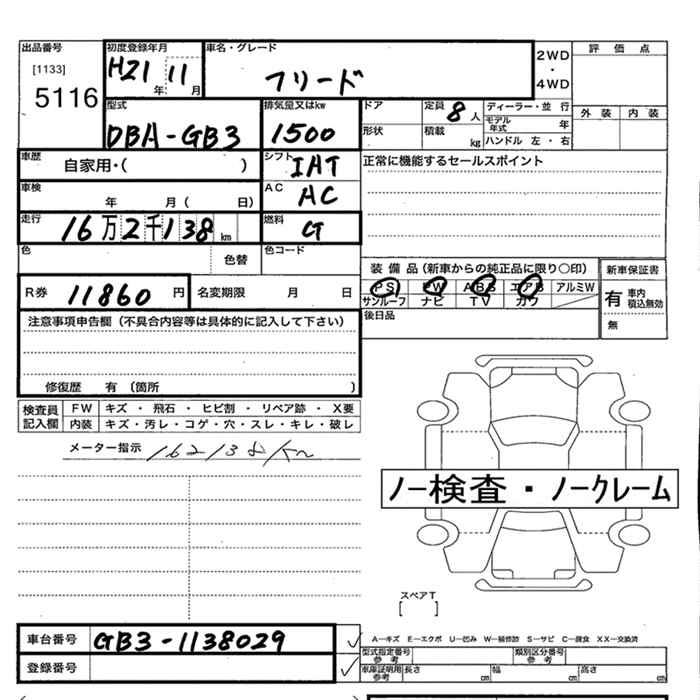 出品番号
[1133]
5116
初度登録年月
H21年 11月
車名・グレード
フリード
2WD
・
4WD
評価点
外装 内装
型式
DBA-GB3
排気量又はkw
1500
ドア
形状
定員 8人
積載 kg
ディーラー・並行
モデル年式 年
ハンドル 左・右
車歴
自家用・( )
シフト
IAT
正常に機能するセールスポイント
車検
年 月( 日)
AC
AC
走行
16万2千138km
燃料
G
色
色替
色コード
装備品(新車からの純正品に限り○印)
PS PW ABS エアB アルミW
サンルーフ ナビ TV カワ
新車保証書
有 車内積込無効
無
R券 11860円
名変期限 月 日
後日品
注意事項申告欄(不具合内容等は具体的に記入して下さい)
修復歴 有(箇所 )
検査員記入欄
FW キズ・飛石・ヒビ割・リペア跡・X要
内装 キズ・汚レ・コゲ・穴・スレ・キレ・破レ
メーター指示 162138km
ノー検査・ノークレーム
スペアT
[ ]
車台番号 GB3-1138029
登録番号
A−キズ E−エクボ U−凹み W−補修跡 S−サビ C−腐食 XX−交換済
型式指定番号 参考
類別区分番号 参考
車庫証明用 参考 長さ cm 幅 cm 高さ cm